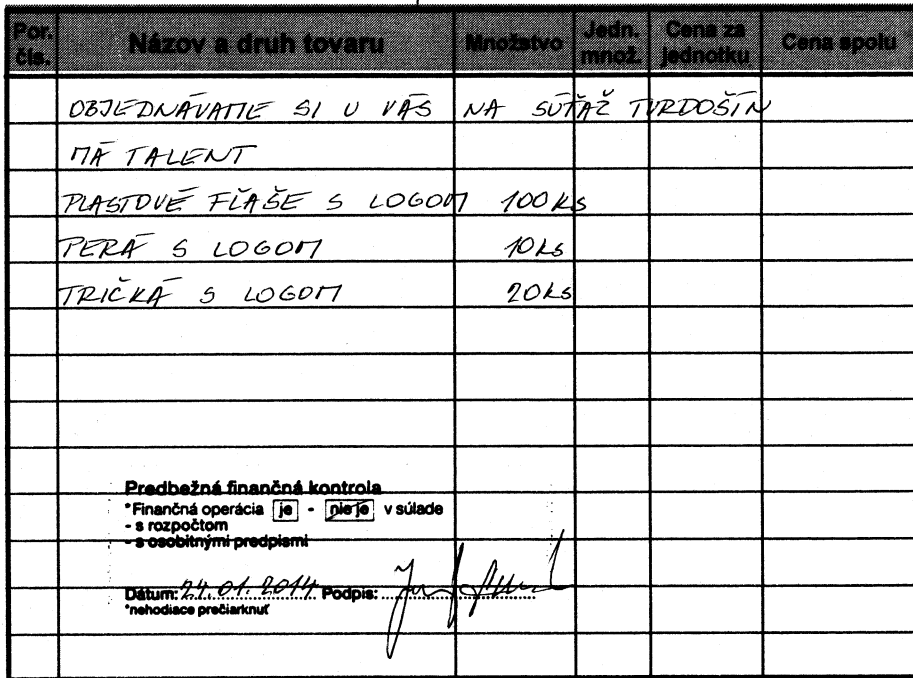 Por. čís. Názov a druh tovaru Množstvo Jedn. množ. Cena za jednotku Cena spolu
OBJEDNÁVAME SI U VÁS NA SÚŤAŽ TVRDOŠÍN
MÁ TALENT
PLASTOVÉ FĽAŠE S LOGOM 100 ks
PERÁ S LOGOM 10 ks
TRIČKÁ S LOGOM 20 ks
Predbežná finančná kontrola
*Finančná operácia je - nie je v súlade
- s rozpočtom
- s osobitnými predpismi
Dátum: 24.01.2014 Podpis:
*nehodiace prečiarknuť